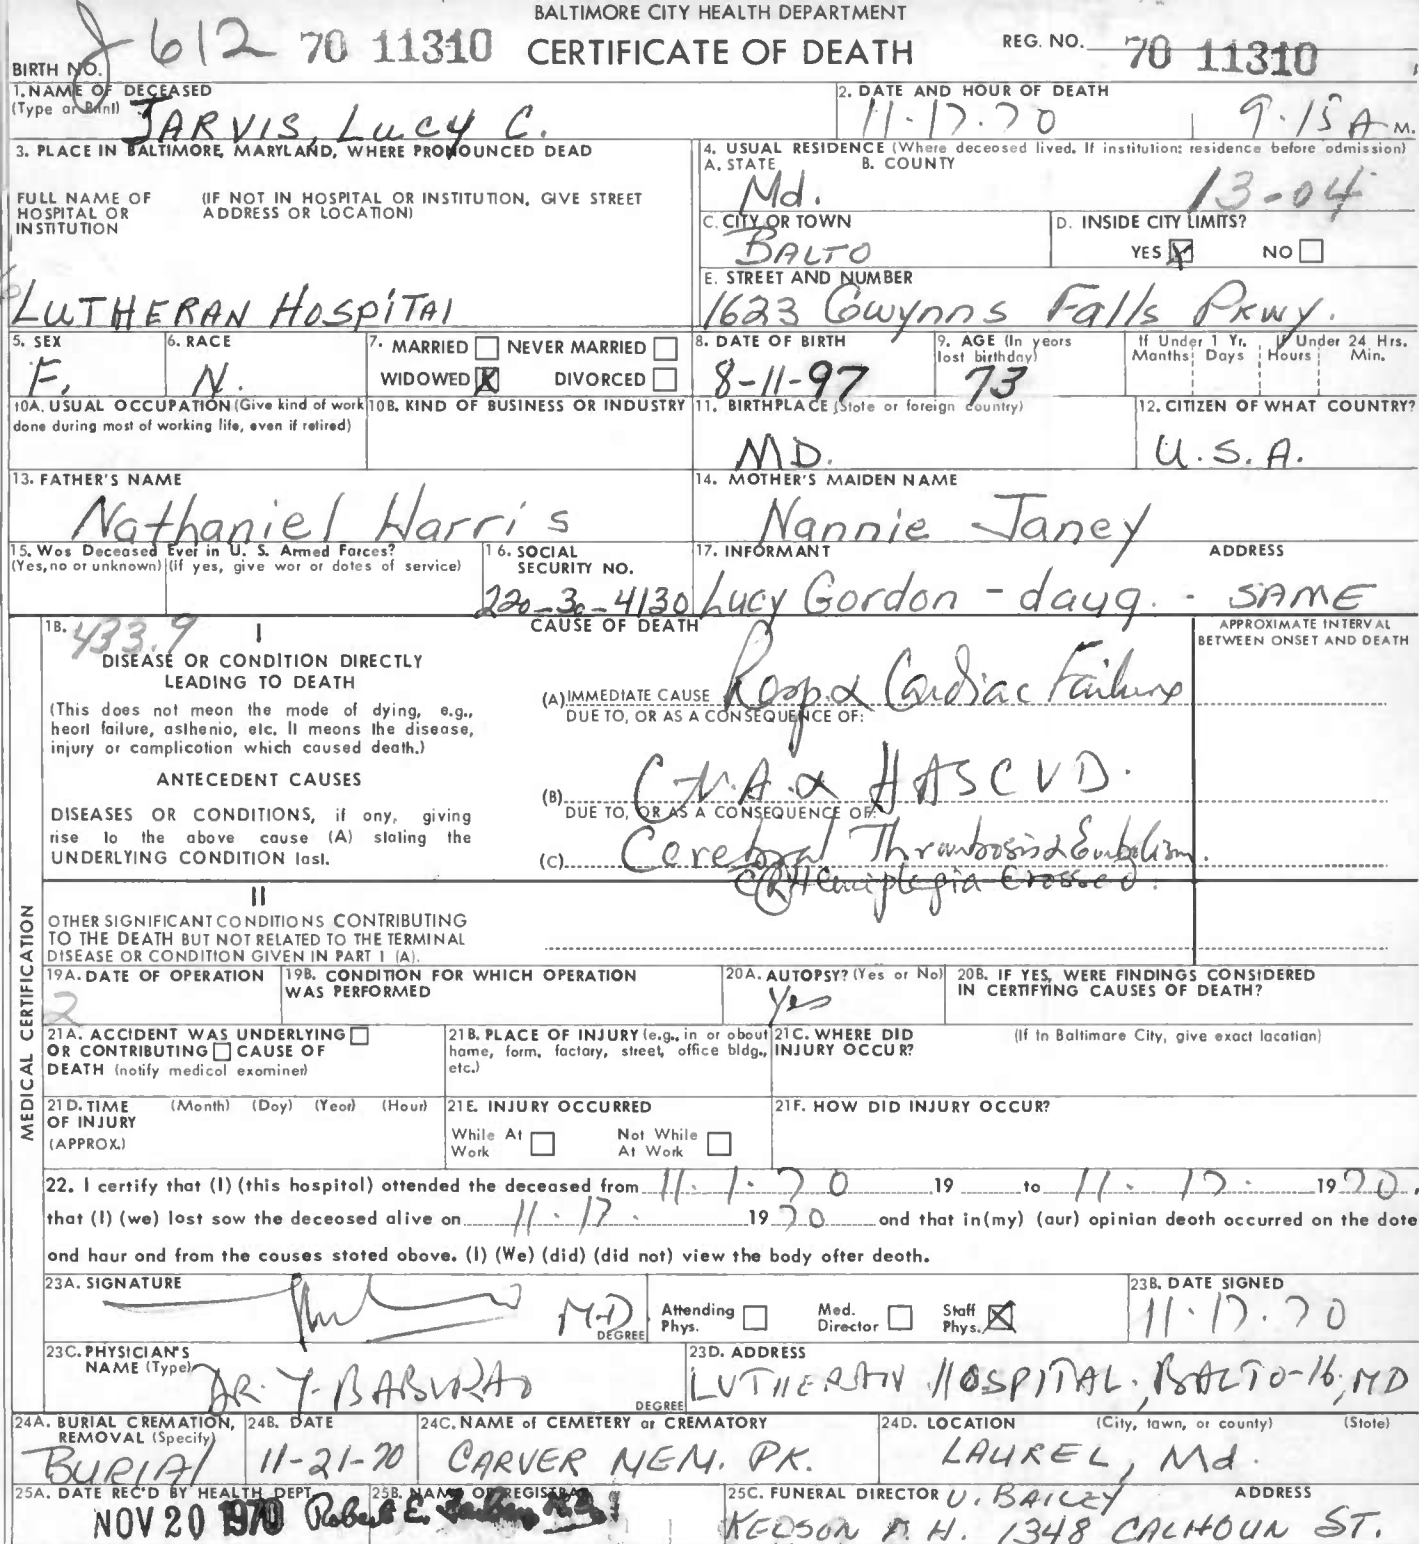 BALTIMORE CITY HEALTH DEPARTMENT
J-612 70 11310 CERTIFICATE OF DEATH REG. NO. 70 11310
BIRTH NO.
1. NAME OF DECEASED
(Type or Print) JARVIS, Lucy C.
2. DATE AND HOUR OF DEATH
11-17-70 9-15 A M.
3. PLACE IN BALTIMORE, MARYLAND, WHERE PRONOUNCED DEAD
FULL NAME OF HOSPITAL OR INSTITUTION
(IF NOT IN HOSPITAL OR INSTITUTION, GIVE STREET ADDRESS OR LOCATION)
LUTHERAN HOSPITAL
4. USUAL RESIDENCE (Where deceased lived. If institution: residence before admission)
A. STATE B. COUNTY
Md. 13-04
C. CITY OR TOWN
BALTO
D. INSIDE CITY LIMITS?
YES X NO
E. STREET AND NUMBER
1623 Gwynns Falls Pkwy.
5. SEX
F.
6. RACE
N.
7. MARRIED NEVER MARRIED
WIDOWED X DIVORCED
8. DATE OF BIRTH
8-11-97
9. AGE (In years last birthday)
73
If Under 1 Yr. Months Days
If Under 24 Hrs. Hours Min.
10A. USUAL OCCUPATION (Give kind of work done during most of working life, even if retired)
10B. KIND OF BUSINESS OR INDUSTRY
11. BIRTHPLACE (State or foreign country)
MD.
12. CITIZEN OF WHAT COUNTRY?
U.S.A.
13. FATHER'S NAME
Nathaniel Harris
14. MOTHER'S MAIDEN NAME
Nannie Janey
15. Was Deceased Ever in U. S. Armed Forces?
(Yes, no or unknown) (If yes, give war or dates of service)
16. SOCIAL SECURITY NO.
220-30-4130
17. INFORMANT ADDRESS
Lucy Gordon - daug. - SAME
18. 433.9 I
CAUSE OF DEATH
APPROXIMATE INTERVAL BETWEEN ONSET AND DEATH
DISEASE OR CONDITION DIRECTLY LEADING TO DEATH
(This does not mean the mode of dying, e.g., heart failure, asthenia, etc. It means the disease, injury or complication which caused death.)
ANTECEDENT CAUSES
DISEASES OR CONDITIONS, if any, giving rise to the above cause (A) stating the UNDERLYING CONDITION last.
(A) IMMEDIATE CAUSE Resp & Cardiac Failure
DUE TO, OR AS A CONSEQUENCE OF:
(B) C.V.A. & HASCVD.
DUE TO, OR AS A CONSEQUENCE OF:
(C) Cerebral Thrombosis & Embolism.
C (R) Hemiplegia Crossed.
II
OTHER SIGNIFICANT CONDITIONS CONTRIBUTING TO THE DEATH BUT NOT RELATED TO THE TERMINAL DISEASE OR CONDITION GIVEN IN PART I (A).
MEDICAL CERTIFICATION
19A. DATE OF OPERATION
2
19B. CONDITION FOR WHICH OPERATION WAS PERFORMED
20A. AUTOPSY? (Yes or No)
Yes
20B. IF YES, WERE FINDINGS CONSIDERED IN CERTIFYING CAUSES OF DEATH?
21A. ACCIDENT WAS UNDERLYING OR CONTRIBUTING CAUSE OF DEATH (notify medical examiner)
21B. PLACE OF INJURY (e.g., in or about home, farm, factory, street, office bldg., etc.)
21C. WHERE DID INJURY OCCUR?
(If in Baltimore City, give exact location)
21D. TIME OF INJURY (APPROX.)
(Month) (Day) (Year) (Hour)
21E. INJURY OCCURRED
While At Work Not While At Work
21F. HOW DID INJURY OCCUR?
22. I certify that (I) (this hospital) attended the deceased from 11-1-70 19 to 11-17- 1970,
that (I) (we) last saw the deceased alive on 11-17- 1970 and that in (my) (our) opinion death occurred on the date
and hour and from the causes stated above. (I) (We) (did) (did not) view the body after death.
23A. SIGNATURE
MD DEGREE
Attending Phys. Med. Director Staff Phys. X
23B. DATE SIGNED
11-17-70
23C. PHYSICIAN'S NAME (Type)
DR. Y. BABURAO DEGREE
23D. ADDRESS
LUTHERAN HOSPITAL, BALTO-16, MD
24A. BURIAL CREMATION, REMOVAL (Specify)
BURIAL
24B. DATE
11-21-70
24C. NAME of CEMETERY or CREMATORY
CARVER MEM. PK.
24D. LOCATION (City, town, or county) (State)
LAUREL, Md.
25A. DATE REC'D BY HEALTH DEPT.
NOV 20 1970
25B. NAME OF REGISTRAR
Robert E.
25C. FUNERAL DIRECTOR ADDRESS
U. BAILEY
KELSON F.H. 1348 CALHOUN ST.